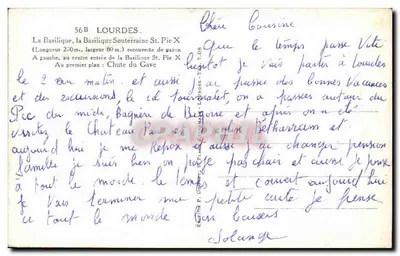 56B LOURDES.
La Basilique, la Basilique Souterraine St. Pie X
(Longueur 200m., largeur 80m.) recouverte de gazon
A gauche, au centre entrée de la Basilique St. Pie X
Au premier plan : Chute du Gave
Chère Cousine
Que le temps passe Vite
bientôt je vais partir à Lourdes
le 2 au matin. et aussi j'ai passer des bonnes Vacances
et des excursions, le col tourmalet, on a passer autour du
Pic du midi, Bagnère de Bigorre et après on a été
visitez le Chateau Pau et grottes Betharram et
aujourd'hui je me repose et aussi au changer pension
famille je suis bien on paye pas chair et aussi je pense
à tout le monde le temps et couvert aujourd'hui
je Vais terminer ma petite carte je pense
à tout le monde bons baisers
Solange